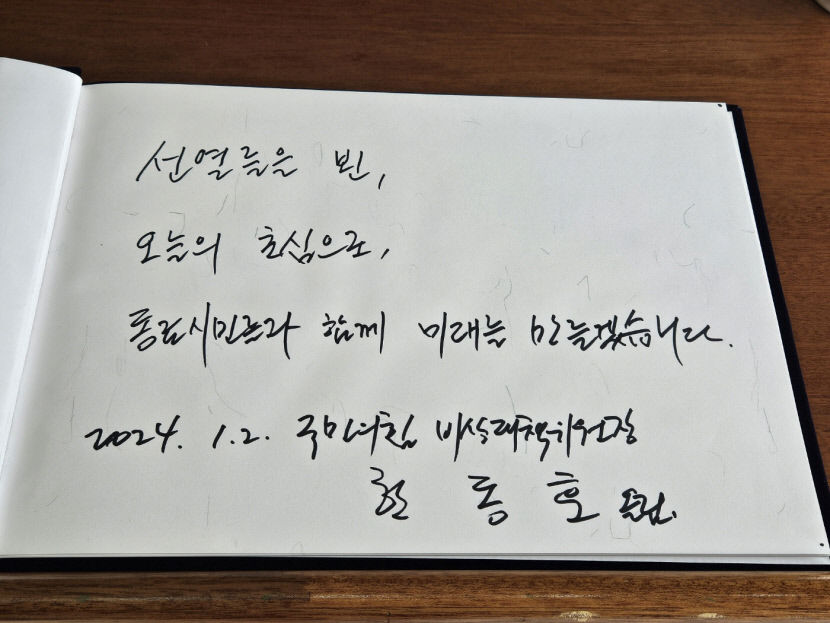 선열들을 뵌,
오늘의 초심으로,
동료시민들과 함께 미래를 만들겠습니다.
2024. 1. 2. 국민의힘 비상대책위원장
한 동 훈